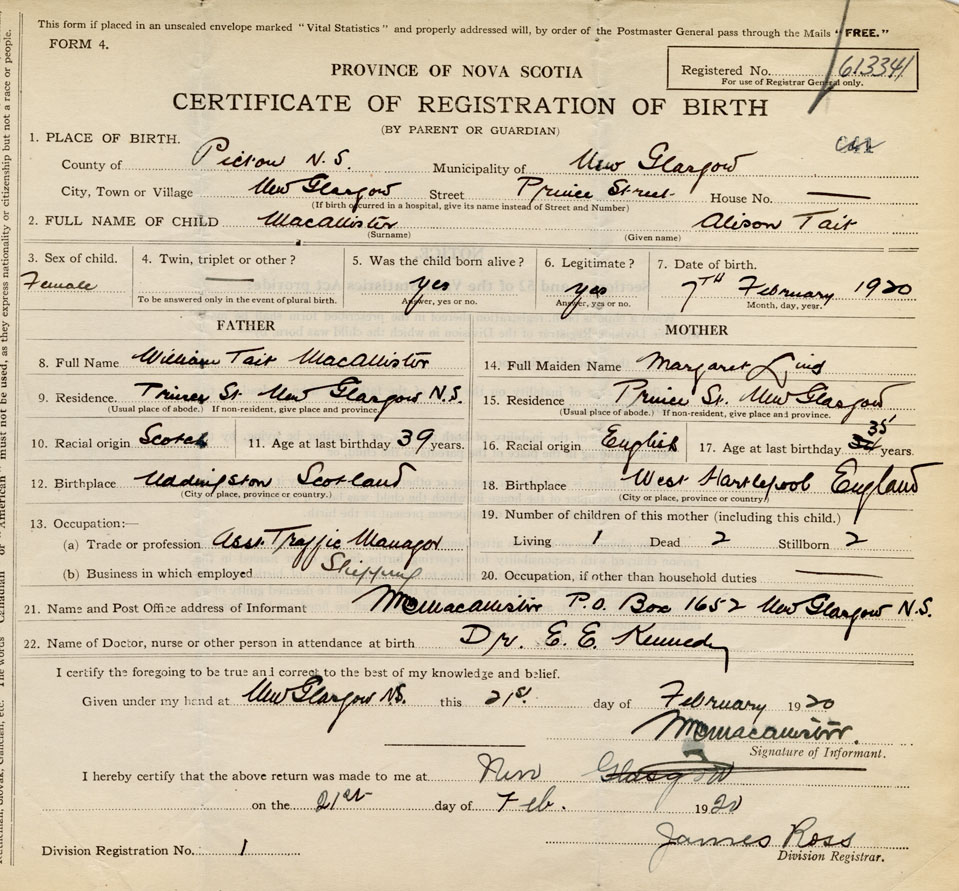 This form if placed in an unsealed envelope marked "Vital Statistics" and properly addressed will, by order of the Postmaster General pass through the Mails "FREE."
FORM 4.
Registered No. 613341
For use of Registrar General only.
PROVINCE OF NOVA SCOTIA
CERTIFICATE OF REGISTRATION OF BIRTH
(BY PARENT OR GUARDIAN)
1. PLACE OF BIRTH.
County of Pictou N.S. Municipality of New Glasgow
City, Town or Village New Glasgow Street Prince Street House No. —
(If birth occurred in a hospital, give its name instead of Street and Number)
2. FULL NAME OF CHILD Macallister Alison Tait
(Surname) (Given name)
3. Sex of child. 4. Twin, triplet or other? 5. Was the child born alive? 6. Legitimate? 7. Date of birth.
Female — yes yes 7TH February 1920
To be answered only in the event of plural birth. Answer, yes or no. Answer, yes or no. Month, day, year.
FATHER MOTHER
8. Full Name William Tait Macallister 14. Full Maiden Name Margaret
9. Residence. Prince St New Glasgow N.S. 15. Residence Prince St. New Glasgow
(Usual place of abode.) If non-resident, give place and province. (Usual place of abode.) If non-resident, give place and province.
10. Racial origin Scotch 11. Age at last birthday 39 years. 16. Racial origin English 17. Age at last birthday 35 years.
12. Birthplace Uddingston Scotland 18. Birthplace West Hartlepool England
(City or place, province or country.) (City or place, province or country.)
13. Occupation:— 19. Number of children of this mother (including this child.)
(a) Trade or profession Asst. Traffic Manager Living 1 Dead 2 Stillborn 2
(b) Business in which employed Shipping 20. Occupation, if other than household duties —
21. Name and Post Office address of Informant Macallister P.O. Box 1652 New Glasgow N.S.
22. Name of Doctor, nurse or other person in attendance at birth Dr. E. E. Kennedy
I certify the foregoing to be true and correct to the best of my knowledge and belief.
Given under my hand at New Glasgow N.S. this 21st. day of February 1920
Macallister.
Signature of Informant.
I hereby certify that the above return was made to me at New Glasgow
on the 21st day of Feb. 1920
James Ross
Division Registrar.
Division Registration No. 1